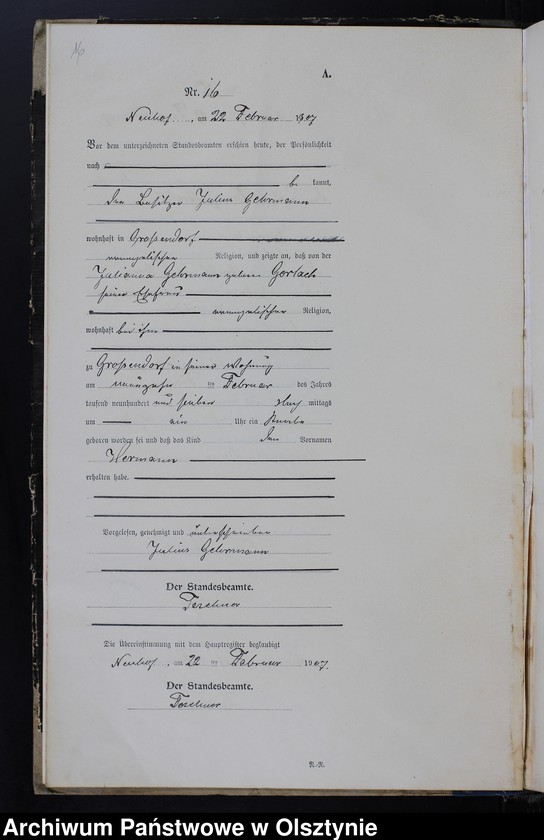 16
A.
Nr. 16
Neuhof, am 22 Februar 1907
Vor dem unterzeichneten Standesbeamten erschien heute, der Persönlichkeit
nach
be kannt,
den Besitzer Julius Gehrmann
wohnhaft in Großendorf
evangelischer Religion, und zeigte an, daß von der
Julianna Gehrmann geboren Gorlach
seiner Ehefrau
evangelischer Religion,
wohnhaft bei ihm
zu Großendorf in seiner Wohnung
am neunzehn ten Februar des Jahres
tausend neunhundert und sieben Nach mittags
um ein Uhr ein Knabe
geboren worden sei und daß das Kind den Vornamen
Hermann
erhalten habe.
Vorgelesen, genehmigt und unterschrieben
Julius Gehrmann
Der Standesbeamte.
Teschner
Die Übereinstimmung mit dem Hauptregister beglaubigt
Neuhof, am 22 ten Februar 1907.
Der Standesbeamte.
Teschner
R.-R.
Archiwum Państwowe w Olsztynie